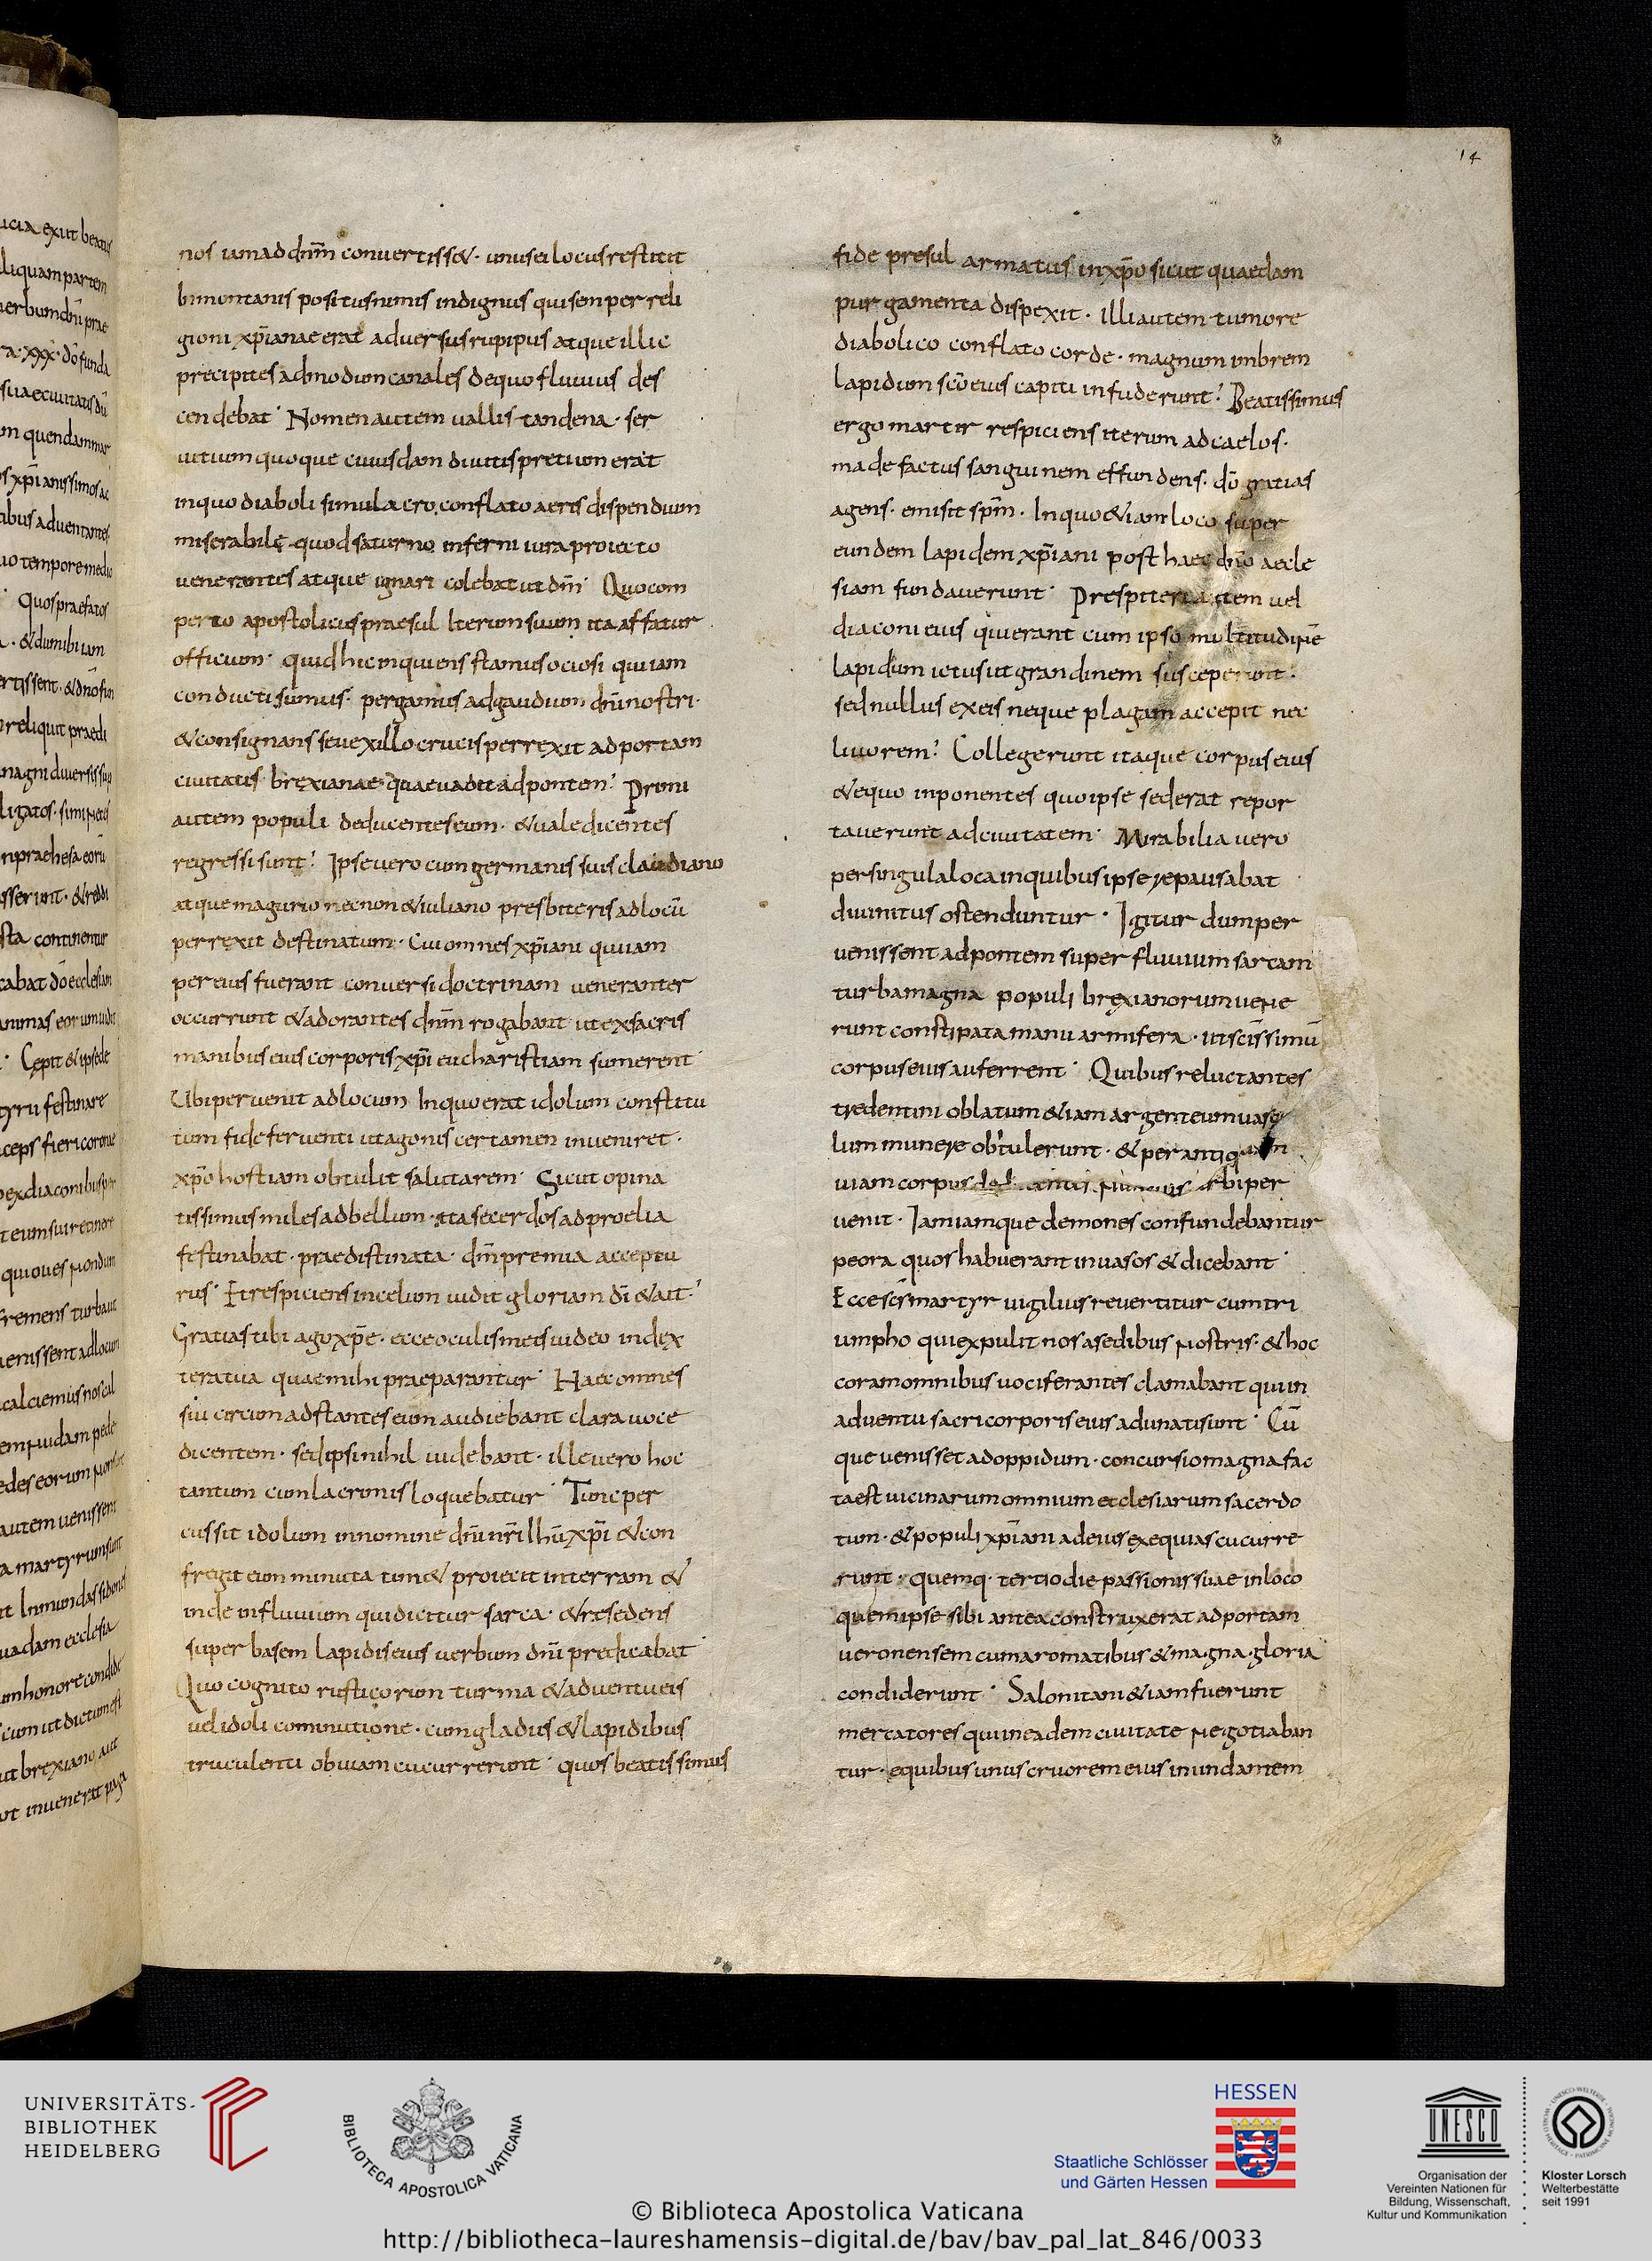 14
nos iamaddn̄m conuertiss&· unuseilocusrestitit
bimontanis positusnimis indignus quisemperreli
gioni xp̄ianaeerat aduersusrupipus atqueillic
precipites admodumcanales dequofluuius des
cendebat· Nomenautem uallis tandena· ser
uitiumquoque cuiusdam diuitispretiumerat
inquodiaboli simulacro conflatoaeris dispendium
miserabile quodsaturno inferni iuraproiecto
uenerantes atque ignari colebatutdm̄· Quocom
perto apostolicuspraesul Iterumsuum itaaffatur
officium· quidhicinquiensstamusociosi quiiam
conductisumus· pergamusadgaudium dn̄inostri·
&consignanssuexillocrucisperrexit adportam
ciuitatis brexianaequaeuaditadpontem· Primi
autem populi deducenteseum· &ualedicentes
regressisunt· Ipseuerocumgermanissuisclaudiano
atquemagurio necnon&iuliano presbiterisadlocū
perrexit destinatum· Cuiomnesxp̄iani quiiam
pereiusfuerant conuersidoctrinam ueneranter
occurrunt &adorantes dn̄m rogabant utexsacris
manibuseiuscorporisxp̄i eucharistiam sumerent·
Ubiperuenit adlocum Inquoerat idolum constitu
tum fideferuenti utagoniscertamen inueniret·
xp̄o hostiam obtulit salutarem· Sicut opina
tissimusmilesadbellum· itasecerdosadproelia
festinabat· praedistinata· dn̄ipremia acceptu
rus· Etrespiciensincelum uidit gloriam dī &ait·
Gratiastibi agoxp̄e· ecceoculismeisuideo index
teratua quaemihipraeparantur· Haecomnes
siu circumadstanteseum audiebant clarauoce
dicentem· sedipsinihil uidebant· illeuero hoc
tantum cumlacrimisloquebatur· Tuncper
cussit idolum innomine dn̄inr̄iihūxp̄i &con
fregit eum minuta tim& proiecit interram &
inde influuium quidicitur sarca· &resedens
super basem lapidiseius uerbum dn̄i predicabat·
Quo cognito rusticorum turma &aduentueis
uelidoli comnutione· cumgladiis &lapidibus
truculenti obuiamcucurrerunt· quosbeatissimus
fide presul armatus inxp̄o sicut quaedam
purgamenta dispexit· illiautem tumore
diabolico conflato corde· magnum imbrem
lapidum scōeius capiti infuderunt· Beatissimus
ergo martir respiciens iterum adcaelos·
madefactus sanguinem effundens· dō gratias
agens· emisit sp̄m· Inquo&iamloco super
eundem lapidem xp̄iani post haec dn̄o aecle
siam fundauerunt· Prespiteri autem uel
diaconieius quierant cum ipso multitudine
lapidum ictusutgrandinem susceperunt·
sednullus exeis neque plagam accepit nec
liuorem· Collegerunt itaque corpuseius
&equo inponentes quoipse sederat repor
tauerunt adciuitatem· Mirabilia uero
persingulalocainquibusipserepausabat
diuinitus ostenduntur· Igitur dumper
uenissent adpontem super fluuiumsarcam
turbamagna populi brexianorumuene
runt constipatamanuarmifera· utscīssimū
corpuseiusauferrent· Quibusreluctantes
tredentini oblatum&iamargenteumuase
lummunere obtulerunt· &perantiquam
uiamcorpus ubiper
uenit· Iamiamquedemonesconfundebantur
peora quoshabuerantinuasos &dicebant·
Eccescs̄martyr uigiliusreuertitur cumtri
umpho quiexpulit nosasedibus nostris· &hoc
coramomnibusuociferantes clamabant quiin
aduentu sacricorporiseiusadunatisunt· Cū
que uenissetadoppidum· concursiomagnafac
taest uicinarumomniumecclesiarumsacerdo
tum· &populixp̄iani adeiusexequiascucurre
runt· quemq· tertiodiepassionissuae inloco
quemipse sibi anteaconstruxerat adportam
ueronensem cumaromatibus&ma·gna·gloria
condiderunt· Salonitani&iamfuerunt
mercatores quiineadem ciuitate negotiaban
tur· equibusunuscruoremeiusinundantem
UNIVERSITÄTS-
BIBLIOTHEK
HEIDELBERG
BIBLIOTECA APOSTOLICA VATICANA
HESSEN
Staatliche Schlösser
und Gärten Hessen
UNESCO
Organisation der
Vereinten Nationen für
Bildung, Wissenschaft,
Kultur und Kommunikation
Kloster Lorsch
Welterbestätte
seit 1991
© Biblioteca Apostolica Vaticana
http://bibliotheca-laureshamensis-digital.de/bav/bav_pal_lat_846/0033